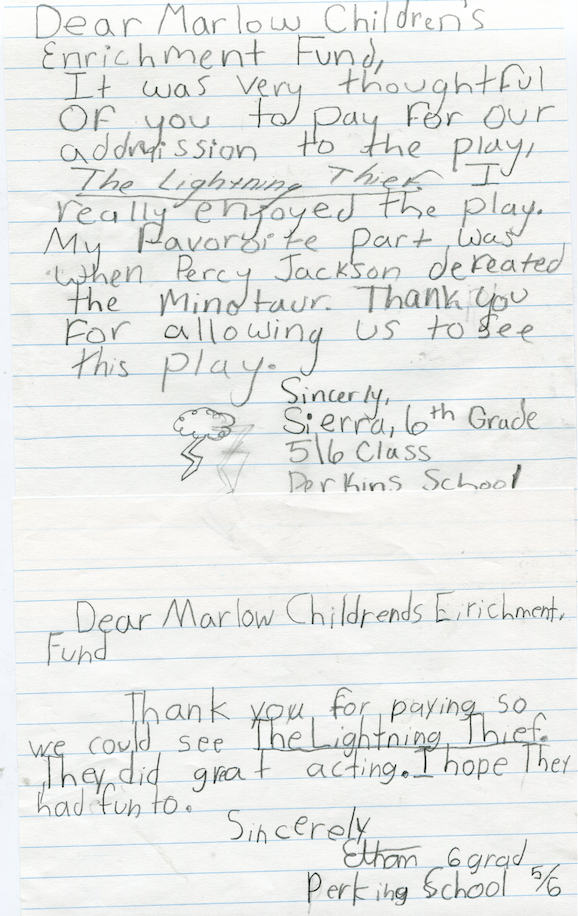 Dear Marlow Children's
Enrichment Fund,
It was very thoughtful
Of you to pay for our
addmission to the play,
The Lightning Thief. I
really enjoyed the play.
My Favoroite part was
when Percy Jackson defeated
the Minotaur. Thank you
For allowing us to see
this play.
Sincerly,
Sierra, 6th Grade
5/6 Class
Perkins School
Dear Marlow Childrends Eirichment,
Fund
Thank you for paying so
we could see The Lightning Thief.
They did great acting. I hope They
had fun to.
Sincerely
Ethan 6 grad
Perking School 5/6